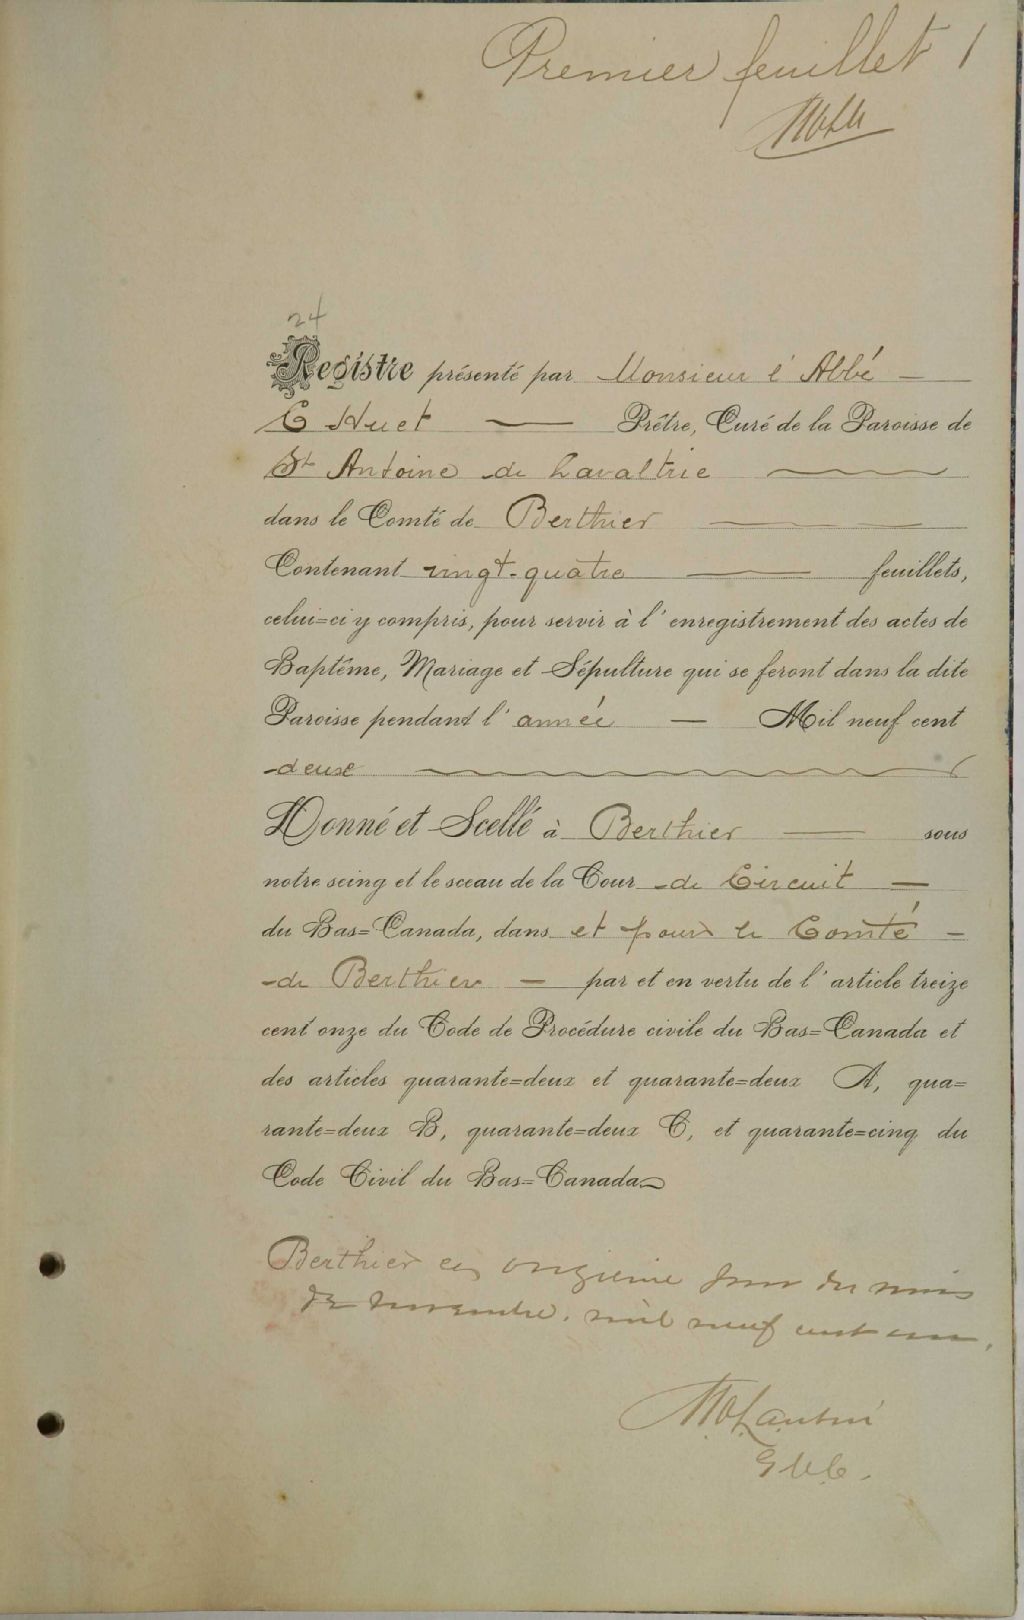 Premier feuillet 1
24
Registre présenté par Monsieur l'Abbé
C Huet Prêtre, Curé de la Paroisse de
St Antoine de Lavaltrie
dans le Comté de Berthier
Contenant vingt-quatre feuillets,
celui=ci y compris, pour servir à l'enregistrement des actes de
Baptême, Mariage et Sépulture qui se feront dans la dite
Paroisse pendant l'année Mil neuf cent
deux
Donné et Scellé à Berthier sous
notre seing et le sceau de la Cour de Circuit
du Bas=Canada, dans et pour le Comté
de Berthier par et en vertu de l'article treize
cent onze du Code de Procédure civile du Bas=Canada et
des articles quarante=deux et quarante=deux A, qua=
rante=deux B, quarante=deux C, et quarante=cinq du
Code Civil du Bas=Canada
Berthier ce onzieme jour du mois
de novembre. mil neuf cent un.